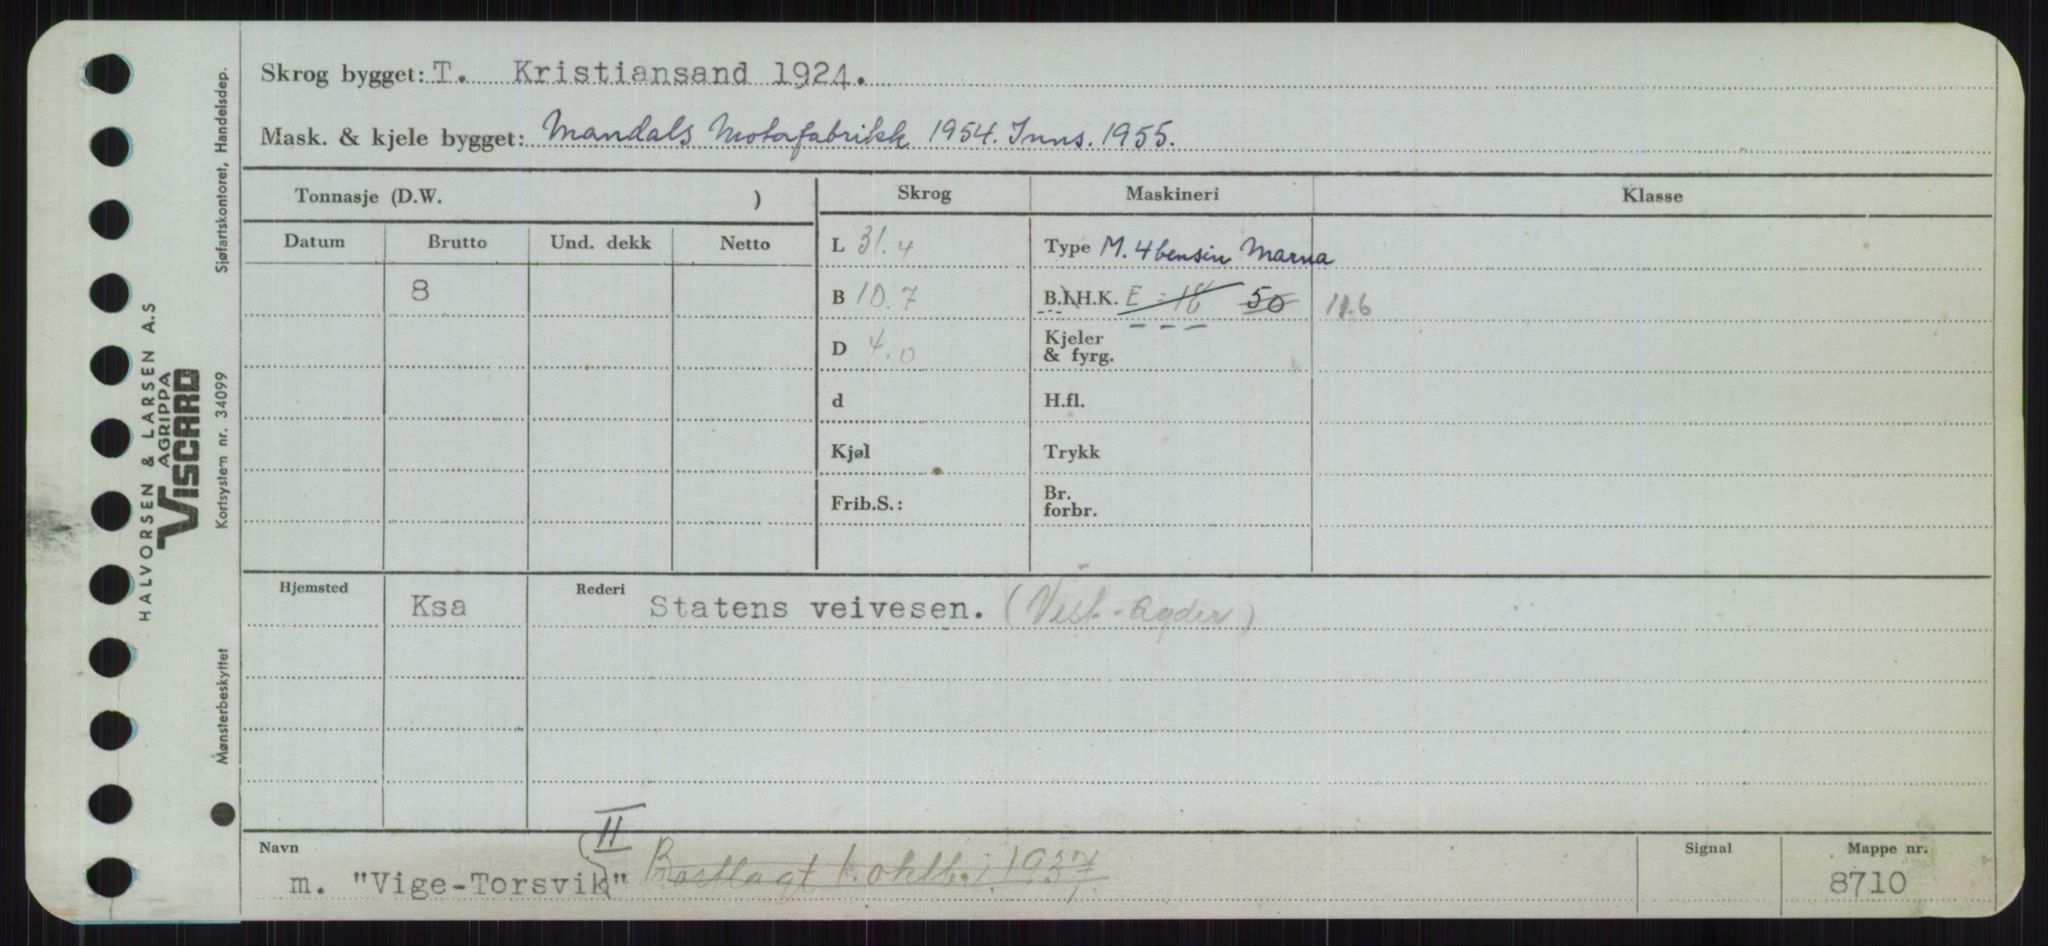 Skrog bygget: T. Kristiansand 1924.
Mask. & kjele bygget: Mandals Motorfabrikk 1954. Inns. 1955.
Tonnasje (D.W. )
Skrog
Maskineri
Klasse
Datum
Brutto
Und. dekk
Netto
8
L 31.4
B 10.7
D 4.0
d
Kjøl
Frib.S.:
Type M. 4 bensin Marna
B.I.H.K. E = 18 50 11.6
Kjeler
& fyrg.
H.fl.
Trykk
Br.
forbr.
Hjemsted
Ksa
Rederi
Statens veivesen. (Vest-Agder)
Navn
II
m. "Vige-Torsvik" Bortlagt 1. 1937
Signal
Mappe nr.
8710
HALVORSEN & LARSEN A.S
AGRIPPA
VISCARD
Sjøfartskontoret, Handelsdep.
Kortsystem nr. 34099
Mønsterbeskyttet